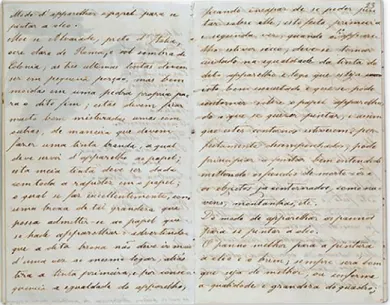 Modo d'apparelhar o papel para n
pintar a oleo.
de Roma,
Colonia, as tres ultimas tintas devem
ser em pequena porção, mas bem
moidas em uma pedra propria para
o dito fim; estas devem ficar
muito bem misturadas umas com
outras, de maneira que devem
fazer uma tinta branda, a qual
deve servir d'apparelho ao papel;
esta meia tinta deve ser dada
com toda a rapidez no papel;
a qual se faz excellentemente, com
uma broxa de tal grandura que
possa admittir-se ao papel que
se hade apparelhar: advertindo
que a dita broxa não deve ir mais
d'uma vez ao mesmo lugar, ali
a tinta primeira, e por conse
quencia a egualdade do apparelho,
ficando incapaz de se poder pin
tar sobre elle; isto feito primeira
e segunda vez, quando o appare
lho estiver seco, deve se tomar
cuidado na egualdade da tinta do
dito apparelho e logo que esteja
isto bem enxuto e que se pode
contornar sobre o papel apparelha
do o que se queira pintar; e
que estes contornos estiverem per
feitamente desempenhados, pode
principiar a pintar bem entendido
mettendo o fundo de morte cor a
os objectos ja contornados, como nu
vens, montanhas, etc.
Do modo de apparelhar os pannos
para se pintar a oleo.
O panno melhor para a pintura
a oleo é o bem; sempre será bom
que seja do melhor, ou conforme
a qualidade e grandeza do quadro